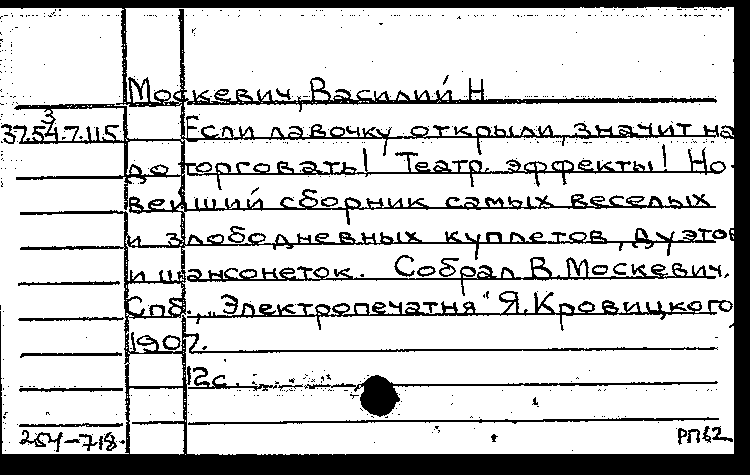 Москевич, Василий Н
3
37.54.7.115 Если лавочку открыли, значит на
до торговать! Театр. эффекты! Но-
вейший сборник самых веселых
и злободневных куплетов, дуэтов
и шансонеток. Собрал В. Москевич.
Спб., "Электропечатня" Я. Кровицкого
1907.
12с.
254-718 РП62